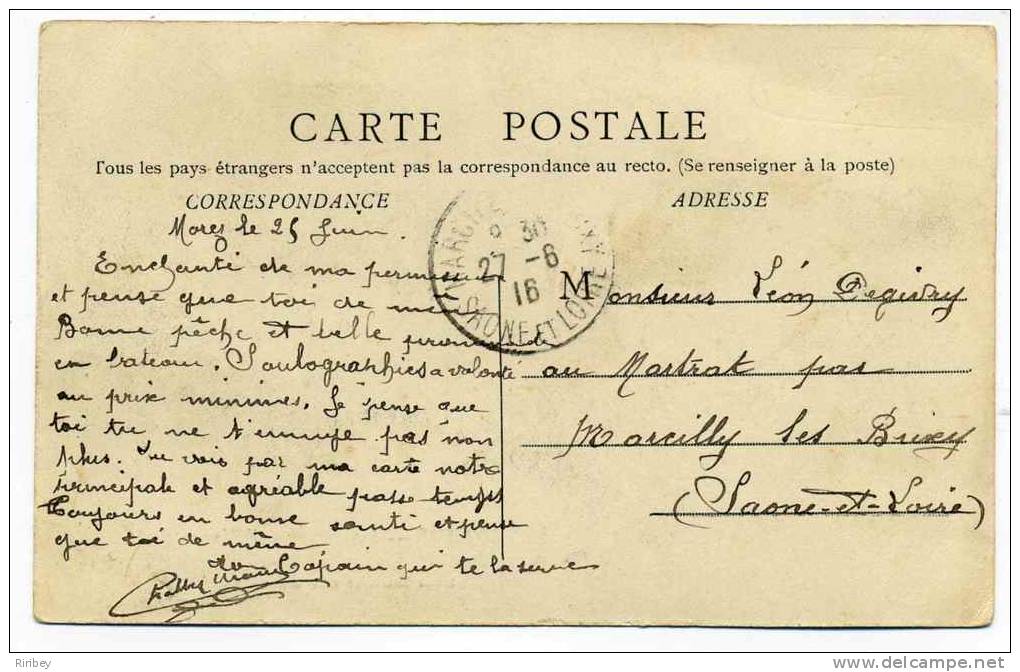 CARTE POSTALE
Tous les pays étrangers n'acceptent pas la correspondance au recto. (Se renseigner à la poste)
CORRESPONDANCE
ADRESSE
le 25 Juin.
Enchanté de ma
et pense que toi de
Bonne pêche et belle
en bateau. Soulographies a volonté
au prix minimes. Je pense que
toi tu ne t'ennuye pas non
plus. Tu vois par ma carte notre
principale et agréable passe temps
Toujours en bonne santé et pense
que toi de même
Copain qui te la serre
30
27 -6
16
SAONE ET LOIRE
Monsieur Léon
au Mastrat par
Marcilly les Buxy
(Saone-et-Loire)
Riribey
www.delcampe.net